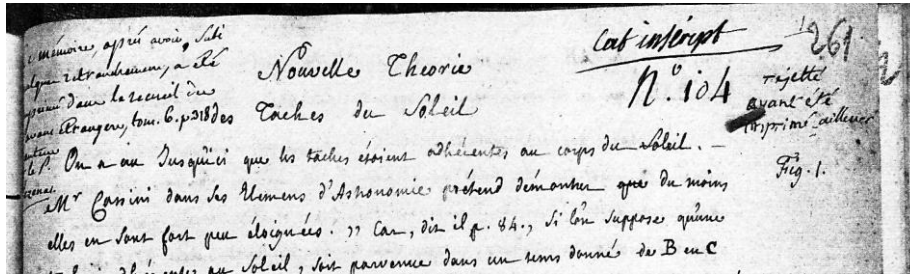 mémoire, après avoir subi
quelque retranchement, a été
imprimé dans le recueil des
savans Etrangers, tom. 6. p. 318
le P.
cet intéript
261
N.º 104
rejetté
ayant été
imprimé ailleurs
Nouvelle Theorie
des Taches du Soleil
On a cru Jusqu'ici que les taches étoient adhérentes au corps du Soleil. –
Fig. 1.
Mr Cassini dans ses Elemens d'Astronomie prétend démontrer que du moins
elles en sont fort peu éloignées. " Car, dit il p. 84., Si l'on suppose qu'une
adhérente au Soleil, soit parvenue dans un tems donné de B en C